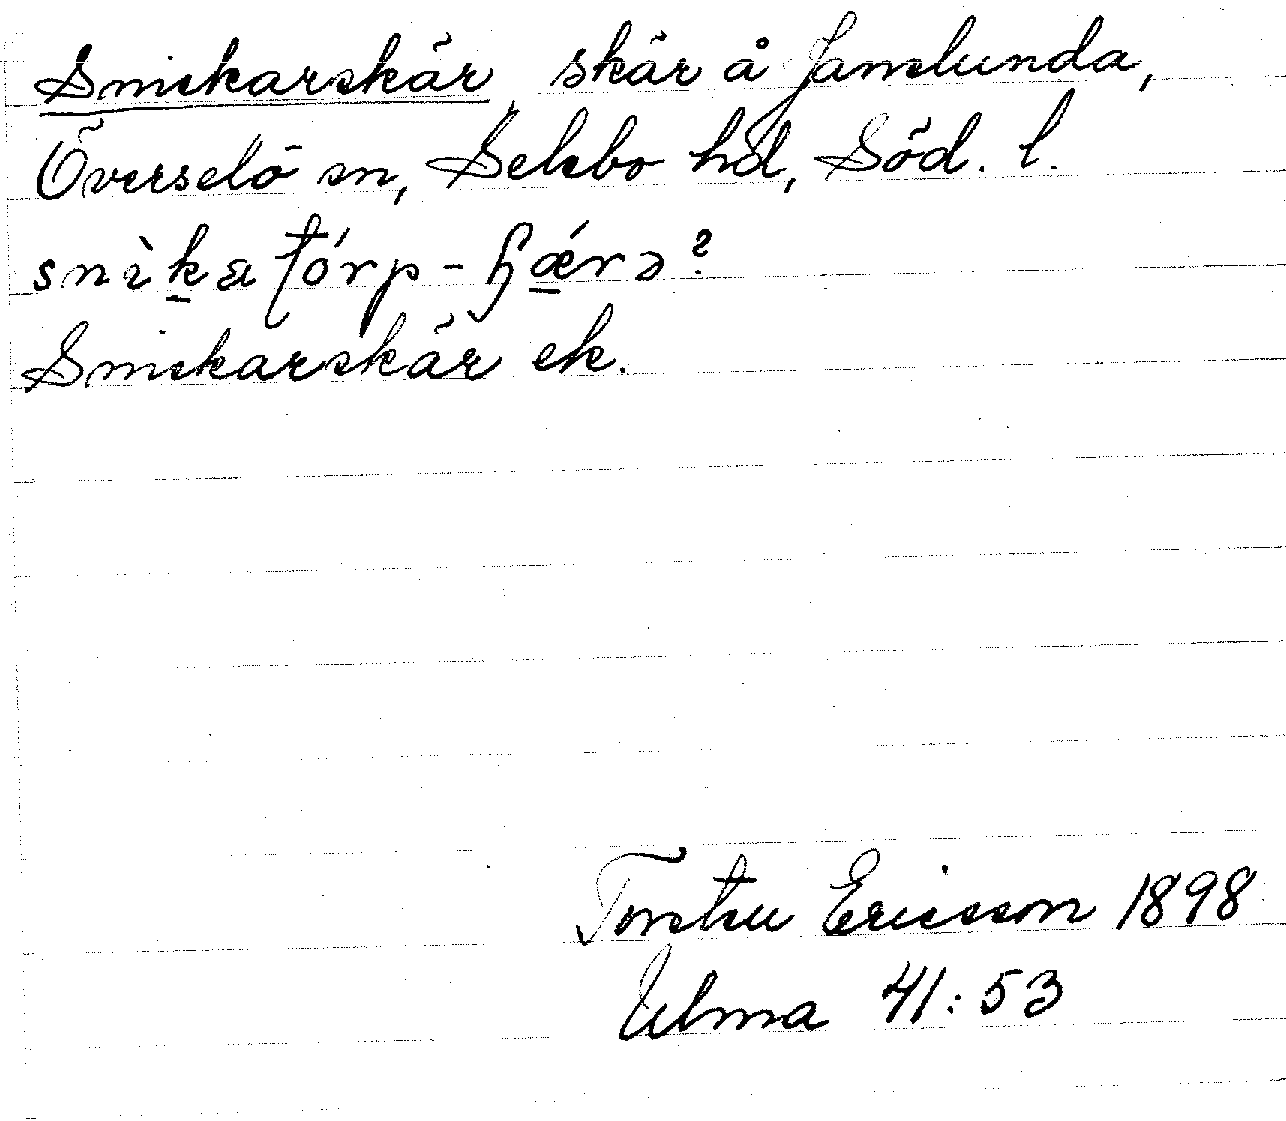 Snickarskär, skär å Janslunda,
Överselö sn, Selebo hd, Söd. l.
Snickarskär ek.
Torsten Ericsson 1898
Ulma 41:53